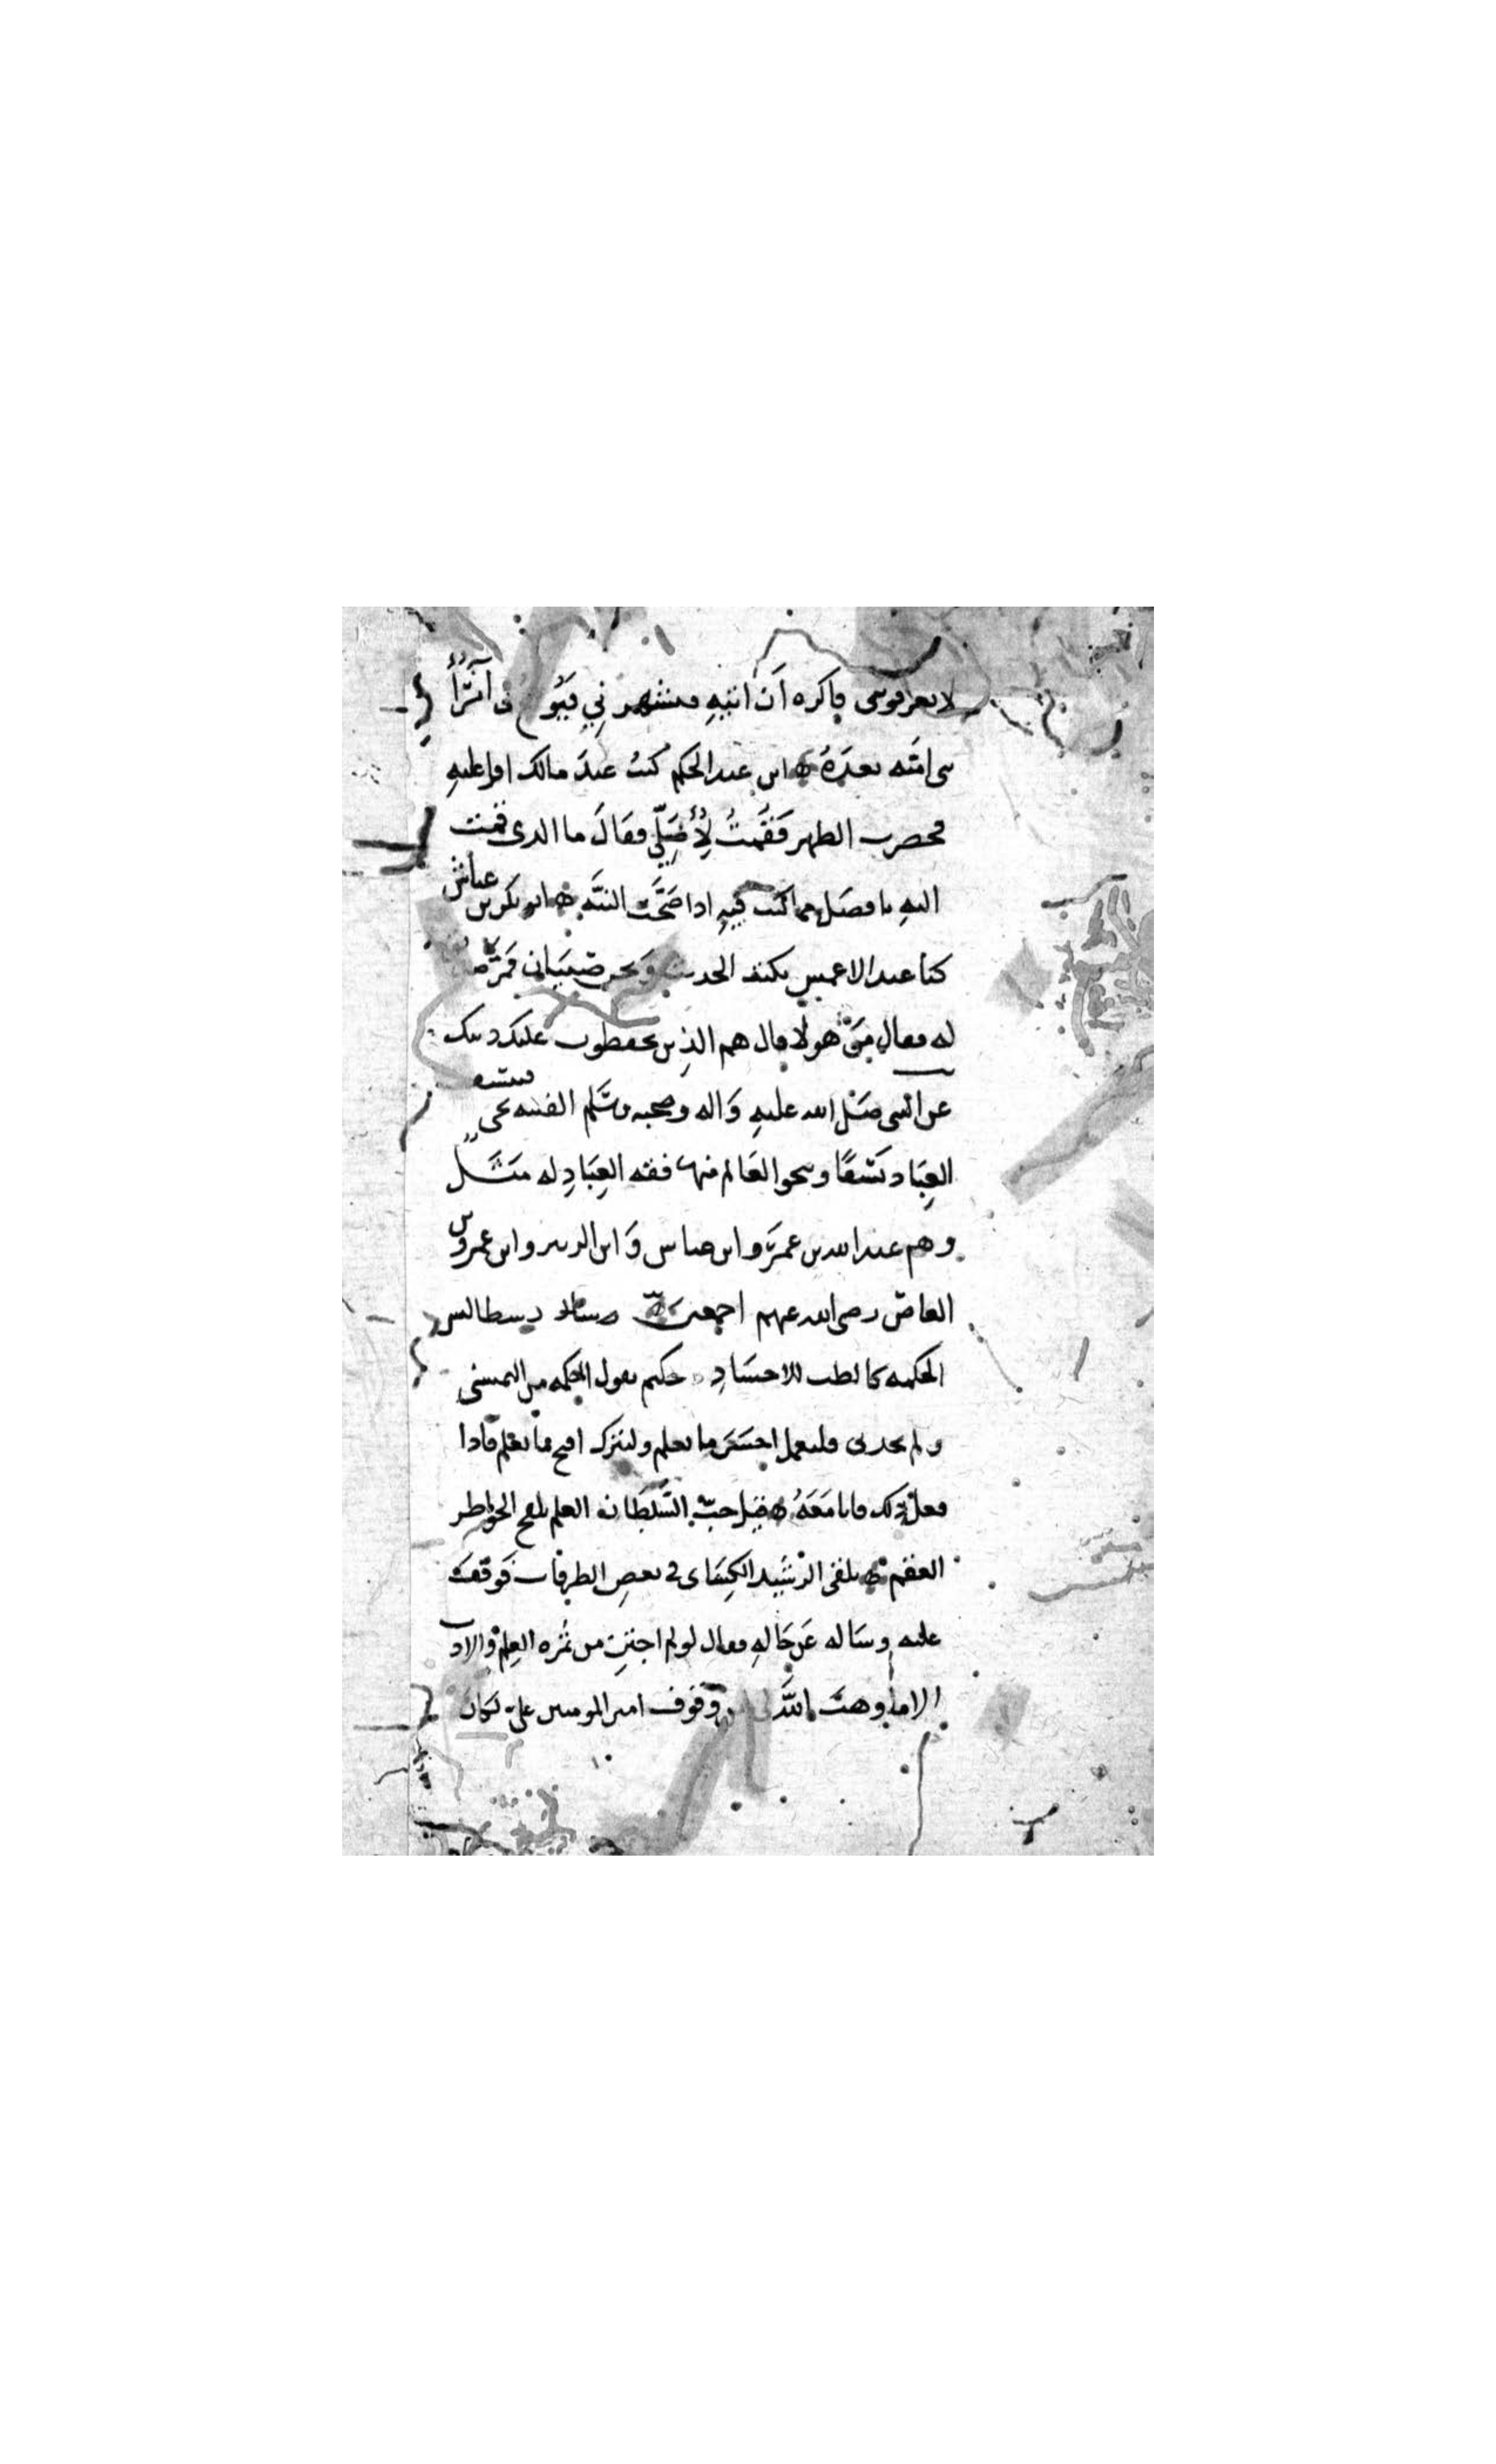 لا يعرفوني فاكره ان انبيه فيشهرني فيتو في آثرا
سي امته بعده ه ابن عبد الحكم كنت عند مالك اقرا عليه
فحضرت الظهر فقمت لأصلي فقال ما الذي قمت
اليه بافضل مما كنت فيه اذا صحت النيه ه ابو بكر بن عياش
كنا عند الاعمش نكتب الحديث ونحن صبيان فمر
له فقال من هولا قال هم الذين يحفظون عليك دينك
عن النبي صلى الله عليه واله وصحبه وسلم الفتنه تجي فتنسف
العباد نسفا وينجو العالم منها فقه العباد له مثل
وهم عبد الله بن عمر وابن عباس وابن الزبير وابن عمرو بن
العاص رضي الله عنهم اجمعين ه رسطاليس
الحكمه كالطب للاجساد ه حكيم يقول الحكمه من التمسني
ولم يجدني فليعمل احسن ما يعلم وليترك اقبح ما يعلم فاذا
فعل ذلك فانا معه ه السلطان العلم تلقح الخواطر
العقم ه تلقى الرشيد الكسائي في بعض الطرقات فوقف
عليه وساله عن حاله فقال لو لم اجتن من ثمره العلم والادب
الا ما وهب الله لي من وقوف امير المومنين علي لكان